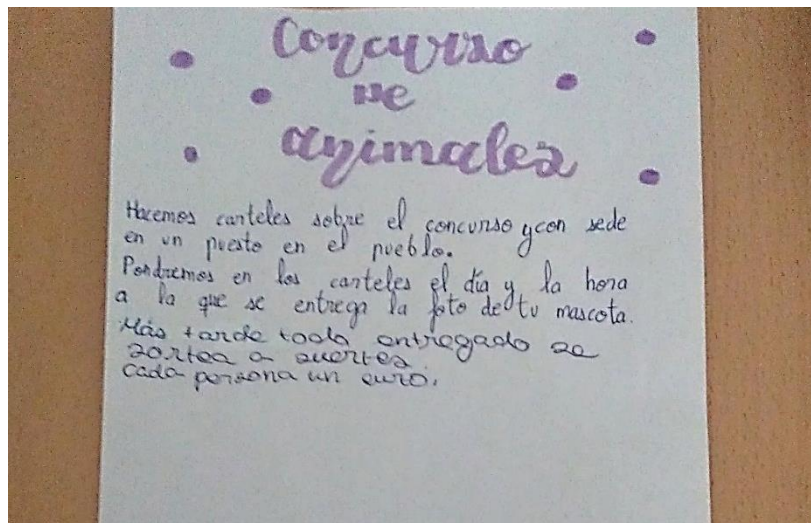 Concurso
De
animales
Hacemos carteles sobre el concurso y con sede
en un puesto en el pueblo.
Pondremos en los carteles el día y la hora
a la que se entrega la foto de tu mascota.
Más tarde todo entregado se
sortea a suertes.
cada persona un euro.